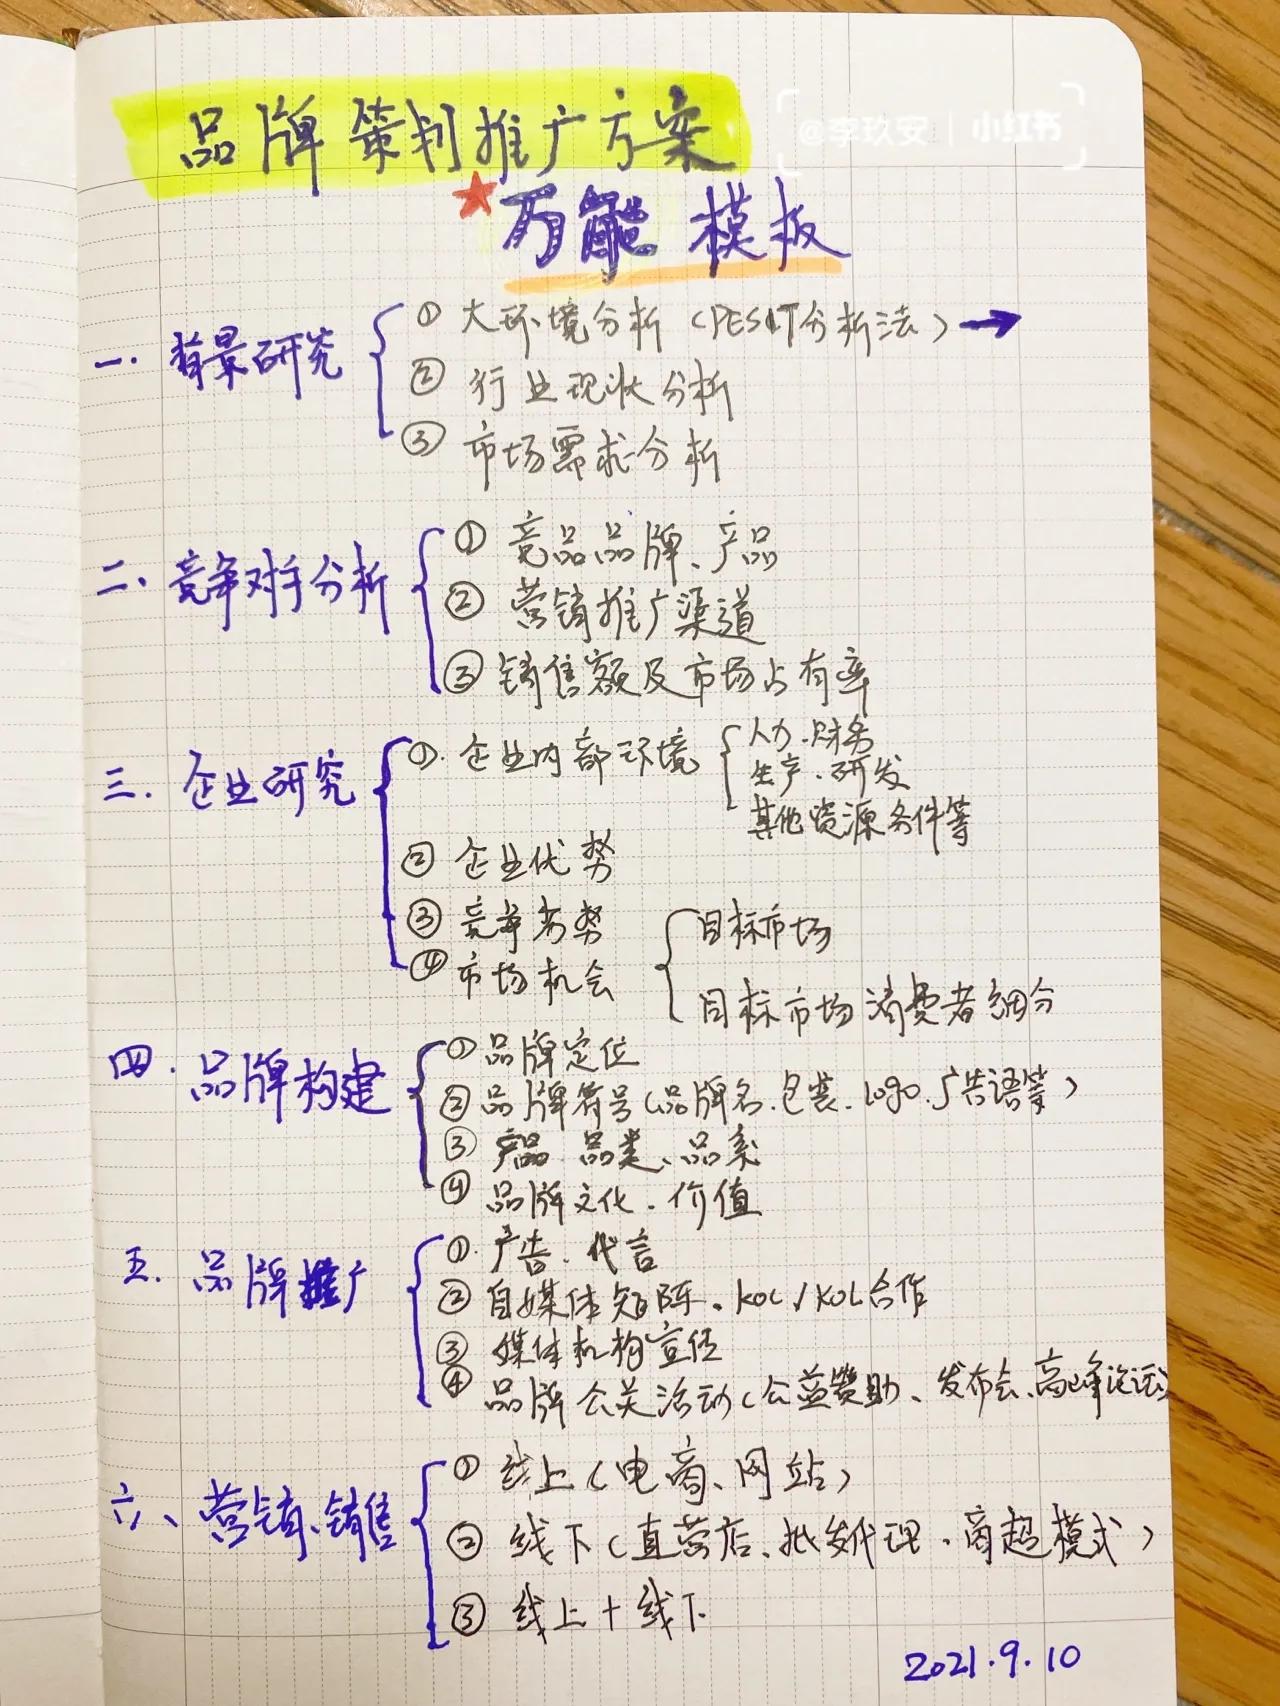 品牌策划推广方案
@李玖安 | 小红书
万能模板
一.背景研究
① 大环境分析（PEST分析法）→
② 行业现状分析
③ 市场需求分析
二、竞争对手分析
① 竞品品牌、产品
② 营销推广渠道
③ 销售额及市场占有率
三.企业研究
①.企业内部环境
人力.财务
生产.研发
其他资源条件等
② 企业优势
③ 竞争劣势
④ 市场机会
目标市场
目标市场消费者细分
四.品牌构建
① 品牌定位
② 品牌符号（品牌名.包装.logo.广告语等）
③ 产品.品类、品系
④ 品牌文化.价值
五.品牌推广
①.广告.代言
② 自媒体矩阵、KOC/KOL合作
③ 媒体机构宣传
④ 品牌公关活动（公益赞助、发布会、高峰论坛）
六、营销、销售
① 线上（电商、网站）
② 线下（直营店、批发代理、商超模式）
③ 线上+线下
2021.9.10